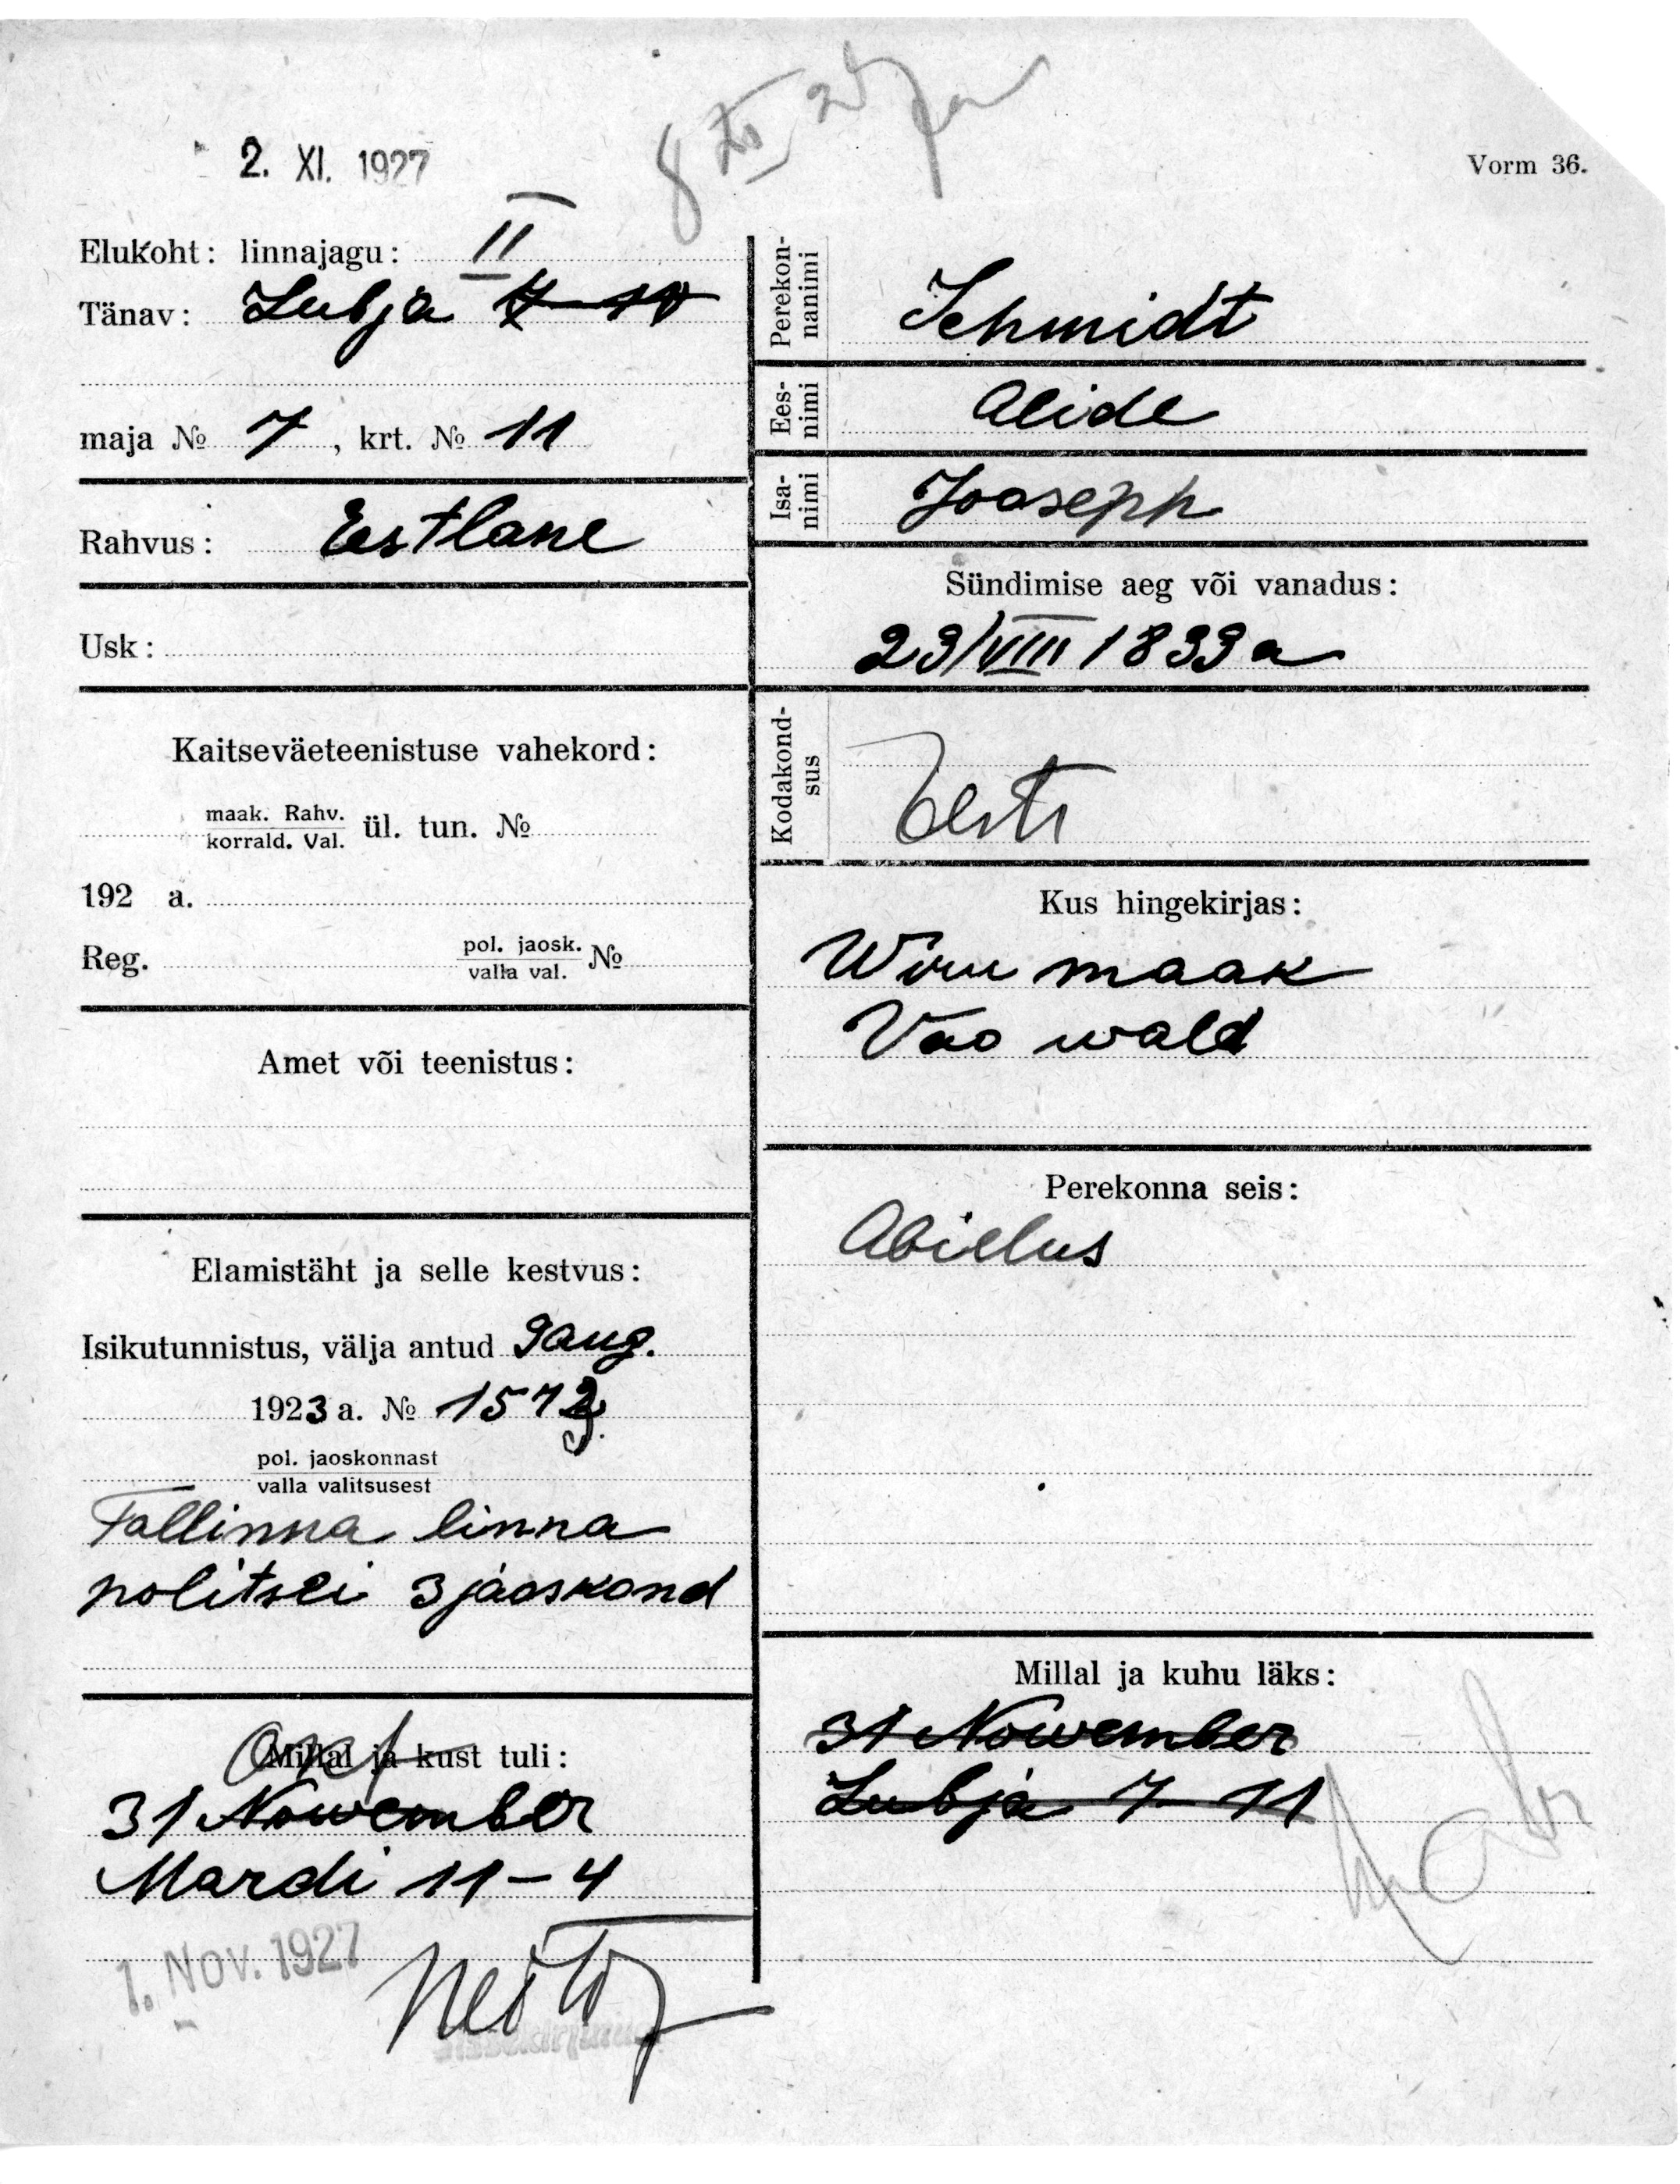 2. XI. 1927
Vorm 36.
Elukoht: linnajagu: II
Tänav: Lubja 7-10
maja № 7, krt. № 11
Rahvus: Eestlane
Usk:
Kaitseväeteenistuse vahekord:
maak. Rahv.
korrald. Val. ül. tun. №
192 a.
Reg. pol. jaosk. №
valla val.
Amet või teenistus:
Elamistäht ja selle kestvus:
Isikutunnistus, välja antud 9 aug.
1923 a. № 1572
pol. jaoskonnast
valla valitsusest
Tallinna linna
politsei 3 jaoskond
Millal ja kust tuli:
31 Nowember
Mardi 11-4
1. Nov. 1927
Perekonnanimi
Schmidt
Eesnimi
Alide
Isanimi
Jooseph
Sündimise aeg või vanadus:
23/VIII 1899 a
Kodakondsus
Eesti
Kus hingekirjas:
Wiru maak
Vao wald
Perekonna seis:
Abielus
Millal ja kuhu läks:
31 Nowember
Lubja 7-11